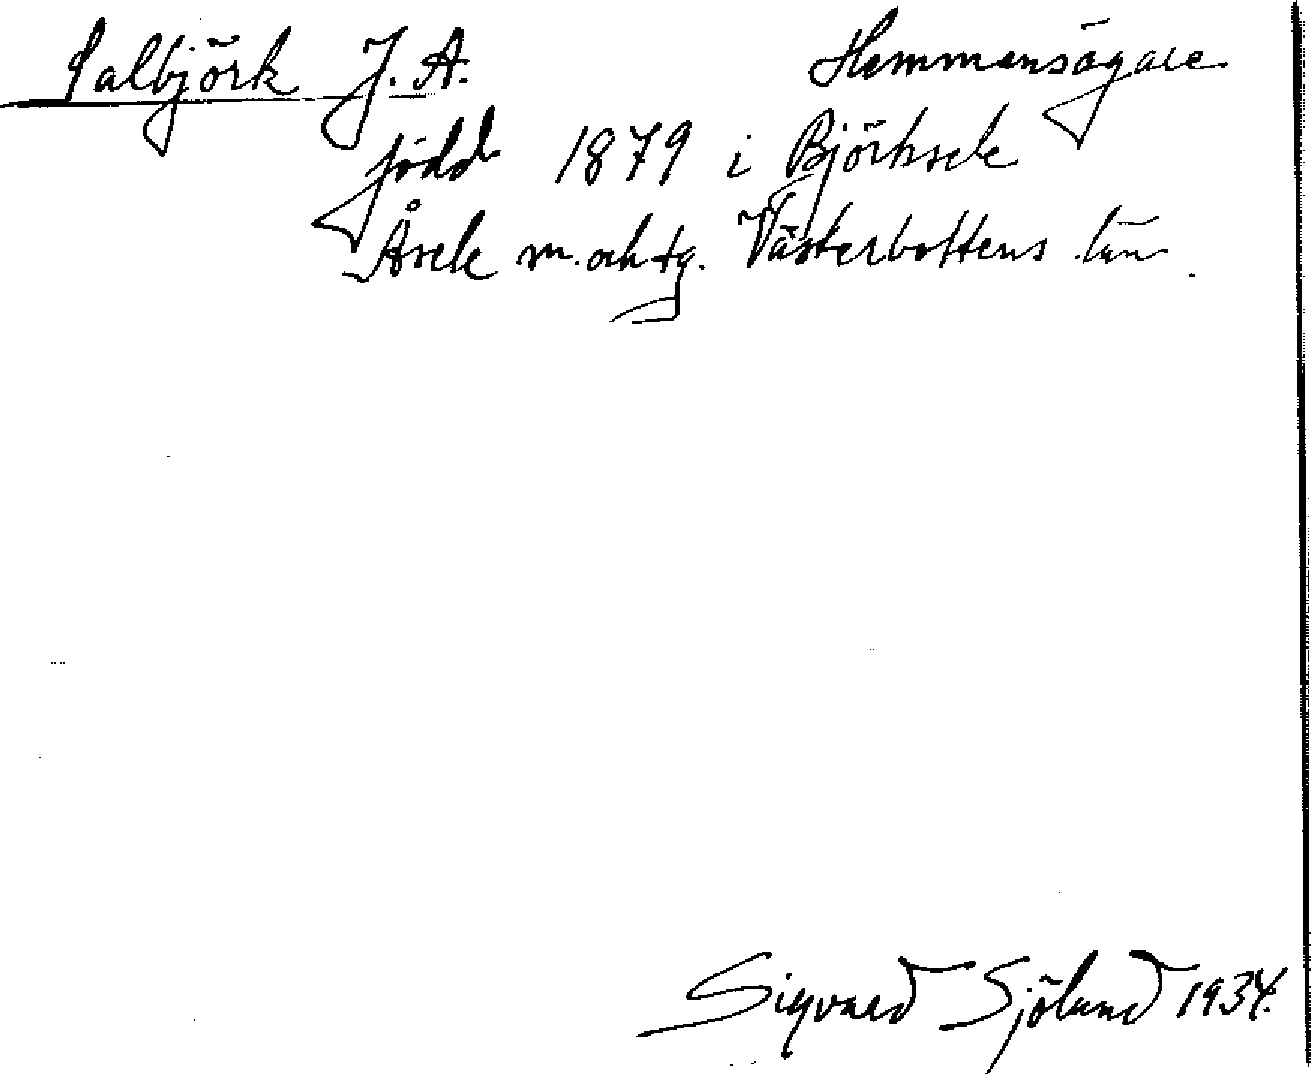 Salbjörk J. A. Hemmensägare
född 1879 i Björksele
Åsele m. och tg. Västerbottens län
Sigvard Sjölund 1934.